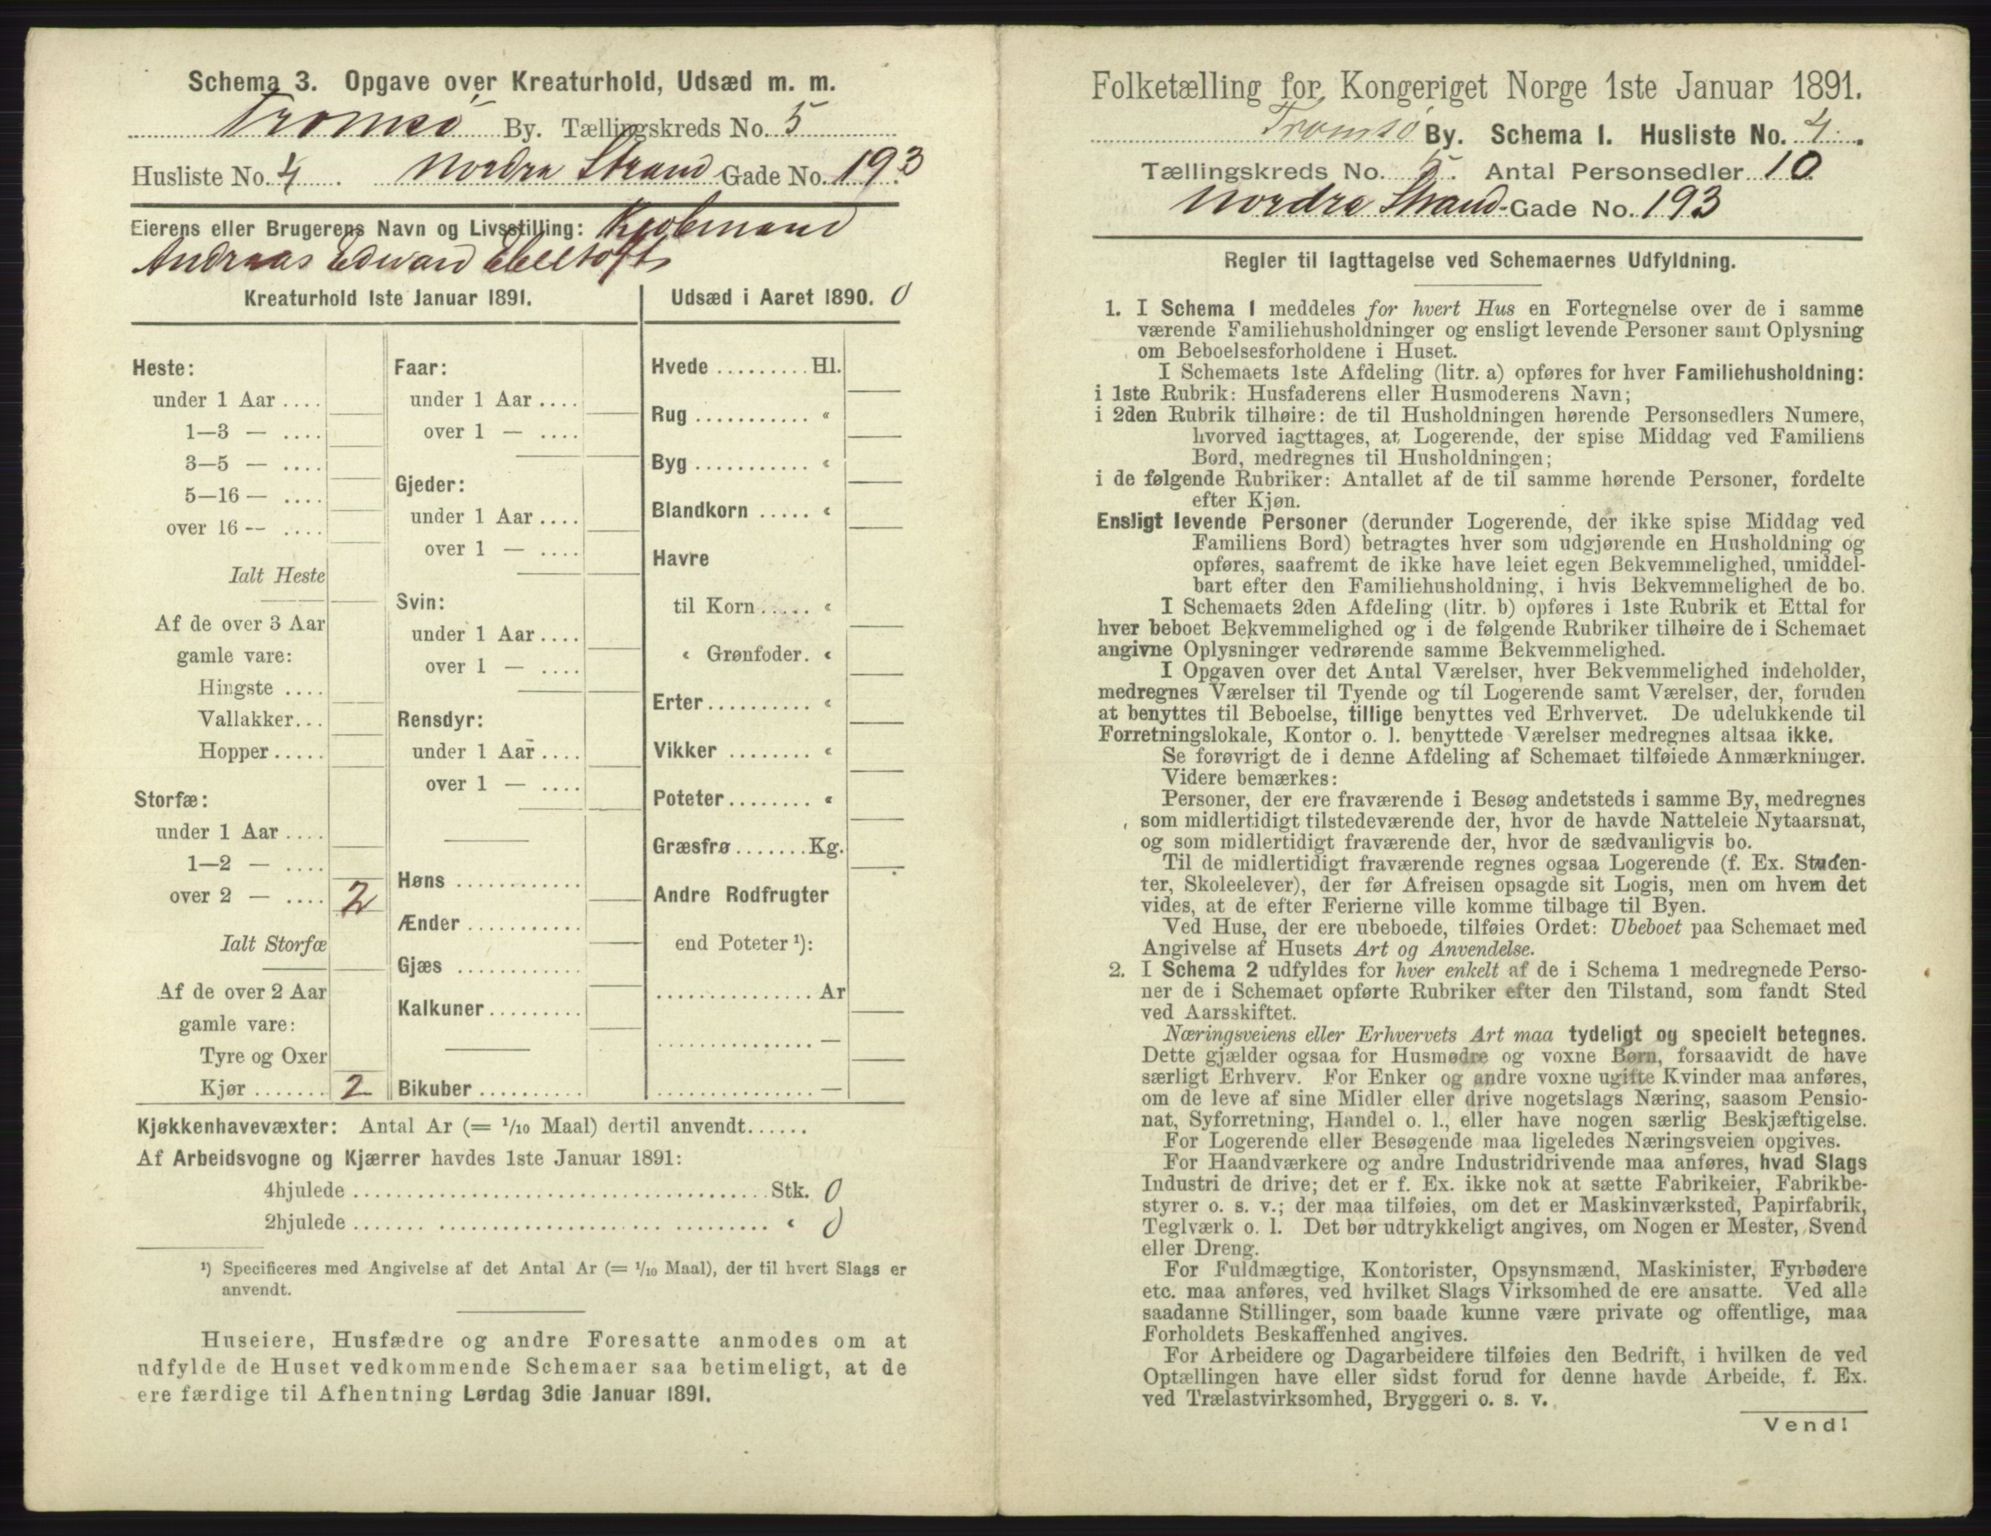 Schema 3. Opgave over Kreaturhold, Udsæd m. m.
Tromsø By. Tællingskreds No. 5
Husliste No. 4 Nordre Strand Gade No. 193
Eierens eller Brugerens Navn og Livsstilling: Kjøbmand
Andreas Edward Ebeltoft
Kreaturhold 1ste Januar 1891.
Heste:
under 1 Aar ....
1—3 — ....
3—5 — ....
5—16 — ....
over 16 — ....
Ialt Heste
Af de over 3 Aar
gamle vare:
Hingste ....
Vallakker...
Hopper.....
Storfæ:
under 1 Aar ....
1—2 — ....
over 2 — .... 2
Ialt Storfæ
Af de over 2 Aar
gamle vare:
Tyre og Oxer
Kjør ....... 2
Faar:
under 1 Aar ....
over 1 — ....
Gjeder:
under 1 Aar ....
over 1 — ....
Svin:
under 1 Aar ....
over 1 — ....
Rensdyr:
under 1 Aar ....
over 1 — ....
Høns ............
Ænder ...........
Gjæs ............
Kalkuner.........
Bikuber ..........
Udsæd i Aaret 1890. 0
Hvede ......... Hl.
Rug ........... «
Byg ........... «
Blandkorn ..... «
Havre
til Korn ..... «
« Grønfoder. «
Erter .......... «
Vikker ........ «
Poteter ........ «
Græsfrø ....... Kg.
Andre Rodfrugter
end Poteter ¹):
............... Ar
............... —
............... —
Kjøkkenhavevæxter: Antal Ar (= 1/10 Maal) dertil anvendt......
Af Arbeidsvogne og Kjærrer havdes 1ste Januar 1891:
4hjulede ........................................ Stk. 0
2hjulede ........................................ « 0
¹) Specificeres med Angivelse af det Antal Ar (= 1/10 Maal), der til hvert Slags er
anvendt.
Huseiere, Husfædre og andre Foresatte anmodes om at
udfylde de Huset vedkommende Schemaer saa betimeligt, at de
ere færdige til Afhentning Lørdag 3die Januar 1891.
Folketælling for Kongeriget Norge 1ste Januar 1891.
Tromsø By. Schema 1. Husliste No. 4.
Tællingskreds No. 5. Antal Personsedler 10
Nordre Strand-Gade No. 193
Regler til Iagttagelse ved Schemaernes Udfyldning.
1. I Schema 1 meddeles for hvert Hus en Fortegnelse over de i samme
værende Familiehusholdninger og ensligt levende Personer samt Oplysning
om Beboelsesforholdene i Huset.
I Schemaets 1ste Afdeling (litr. a) opføres for hver Familiehusholdning:
i 1ste Rubrik: Husfaderens eller Husmoderens Navn;
i 2den Rubrik tilhøire: de til Husholdningen hørende Personsedlers Numere,
hvorved iagttages, at Logerende, der spise Middag ved Familiens
Bord, medregnes til Husholdningen;
i de følgende Rubriker: Antallet af de til samme hørende Personer, fordelte
efter Kjøn.
Ensligt levende Personer (derunder Logerende, der ikke spise Middag ved
Familiens Bord) betragtes hver som udgjørende en Husholdning og
opføres, saafremt de ikke have leiet egen Bekvemmelighed, umiddel-
bart efter den Familiehusholdning, i hvis Bekvemmelighed de bo.
I Schemaets 2den Afdeling (litr. b) opføres i 1ste Rubrik et Ettal for
hver beboet Bekvemmelighed og i de følgende Rubriker tilhøire de i Schemaet
angivne Oplysninger vedrørende samme Bekvemmelighed.
I Opgaven over det Antal Værelser, hver Bekvemmelighed indeholder,
medregnes Værelser til Tyende og til Logerende samt Værelser, der, foruden
at benyttes til Beboelse, tillige benyttes ved Erhvervet. De udelukkende til
Forretningslokale, Kontor o. l. benyttede Værelser medregnes altsaa ikke.
Se forøvrigt de i denne Afdeling af Schemaet tilføiede Anmærkninger.
Videre bemærkes:
Personer, der ere fraværende i Besøg andetsteds i samme By, medregnes
som midlertidigt tilstedeværende der, hvor de havde Natteleie Nytaarsnat,
og som midlertidigt fraværende der, hvor de sædvanligvis bo.
Til de midlertidigt fraværende regnes ogsaa Logerende (f. Ex. Studen-
ter, Skoleelever), der før Afreisen opsagde sit Logis, men om hvem det
vides, at de efter Ferierne ville komme tilbage til Byen.
Ved Huse, der ere ubeboede, tilføies Ordet: Ubeboet paa Schemaet med
Angivelse af Husets Art og Anvendelse.
2. I Schema 2 udfyldes for hver enkelt af de i Schema 1 medregnede Perso-
ner de i Schemaet opførte Rubriker efter den Tilstand, som fandt Sted
ved Aarsskiftet.
Næringsveiens eller Erhvervets Art maa tydeligt og specielt betegnes.
Dette gjælder ogsaa for Husmødre og voxne Børn, forsaavidt de have
særligt Erhverv. For Enker og andre voxne ugifte Kvinder maa anføres,
om de leve af sine Midler eller drive nogetslags Næring, saasom Pensio-
nat, Syforretning, Handel o. l., eller have nogen særlig Beskjæftigelse.
For Logerende eller Besøgende maa ligeledes Næringsveien opgives.
For Haandværkere og andre Industridrivende maa anføres, hvad Slags
Industri de drive; det er f. Ex. ikke nok at sætte Fabrikeier, Fabrikbe-
styrer o. s. v.; der maa tilføies, om det er Maskinværksted, Papirfabrik,
Teglværk o. l. Det bør udtrykkeligt angives, om Nogen er Mester, Svend
eller Dreng.
For Fuldmægtige, Kontorister, Opsynsmænd, Maskinister, Fyrbødere
etc. maa anføres, ved hvilket Slags Virksomhed de ere ansatte. Ved alle
saadanne Stillinger, som baade kunne være private og offentlige, maa
Forholdets Beskaffenhed angives.
For Arbeidere og Dagarbeidere tilføies den Bedrift, i hvilken de ved
Optællingen have eller sidst forud for denne havde Arbeide, f. Ex.
ved Trælastvirksomhed, Bryggeri o. s. v.
Vend!